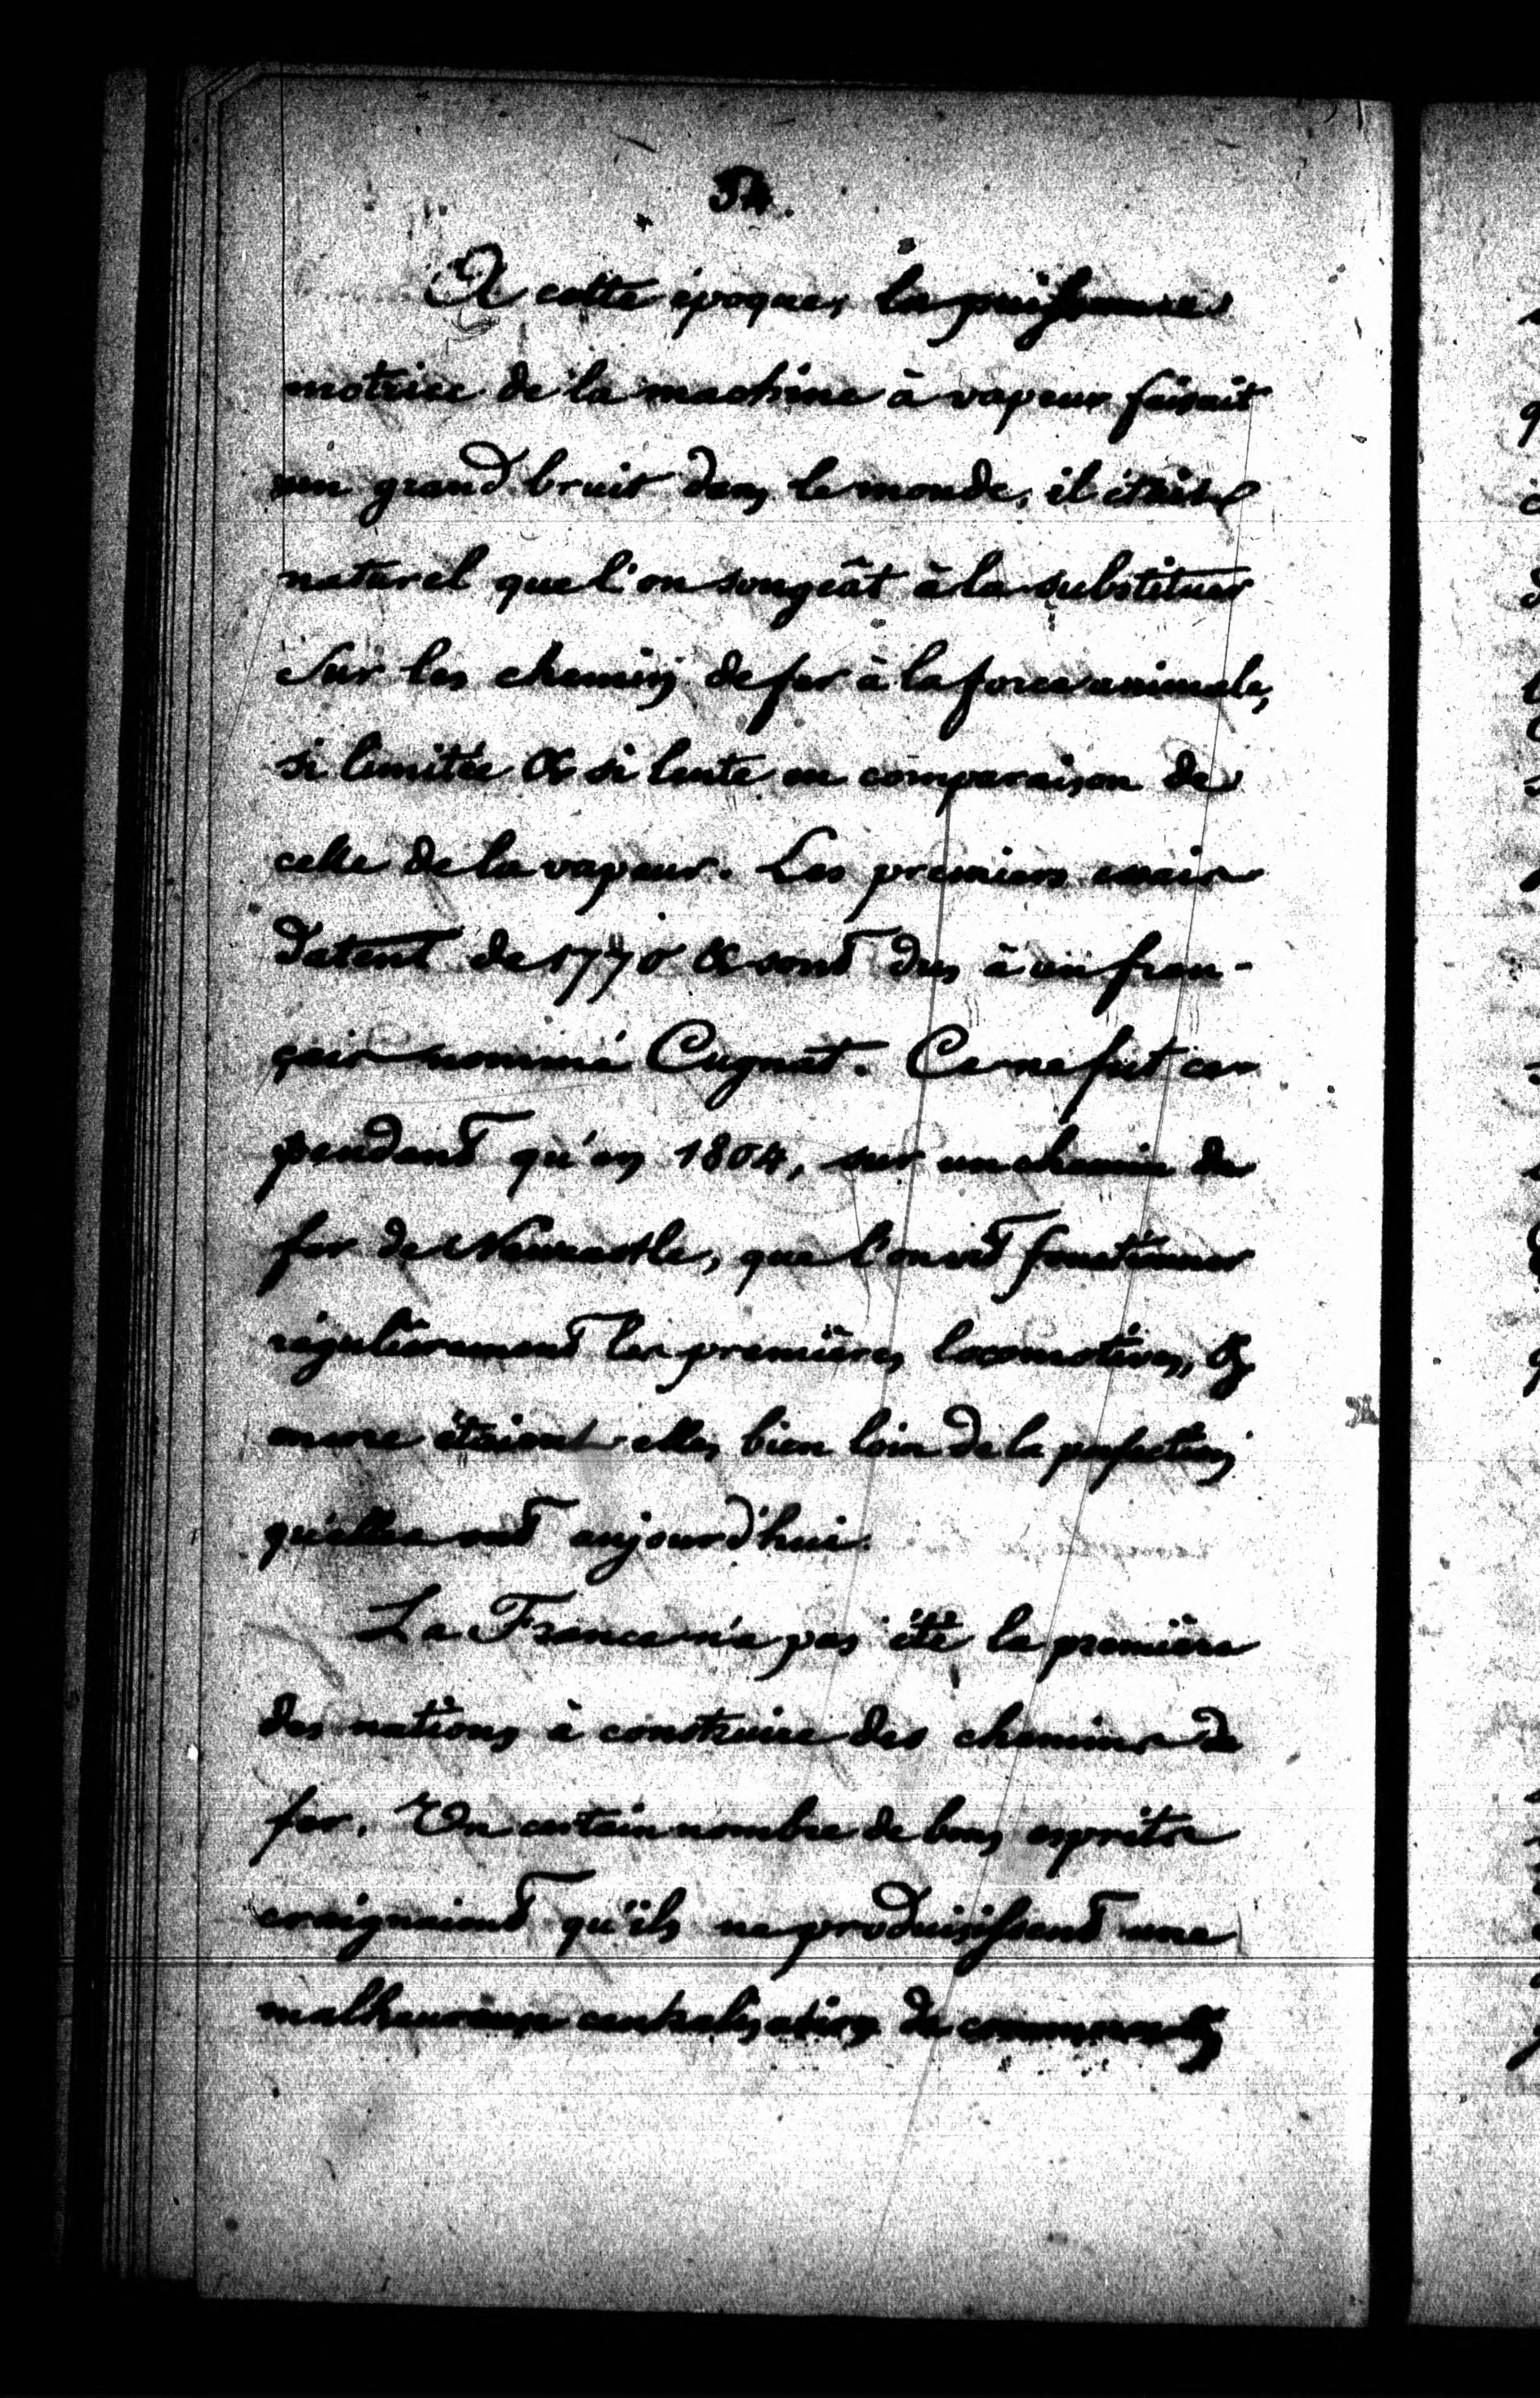 54.
A cette époque, la puissance
motrice de la machine à vapeur faisait
un grand bruit dans le monde, il était
naturel que l'on songeât à la substituer
sur les chemins de fer à la force animale,
si limitée & si lente en comparaison de
celle de la vapeur. Les premiers essais
datent de 1770 & sont dus à un fran-
çais nommé Cugnat. Ce ne fut ce-
pendant qu'en 1804, sur un chemin de
fer de Newcastle, que l'on vit fonctionner
régulièrement les premières locomotives, &
encore étaient elles bien loin de la perfection
qu'elles ont aujourd'hui.
La France n'a pas été la première
des nations à construire des chemins de
fer. Un certain nombre de bons esprits
craignaient qu'ils ne produisissent une
malheureuse centralisation de